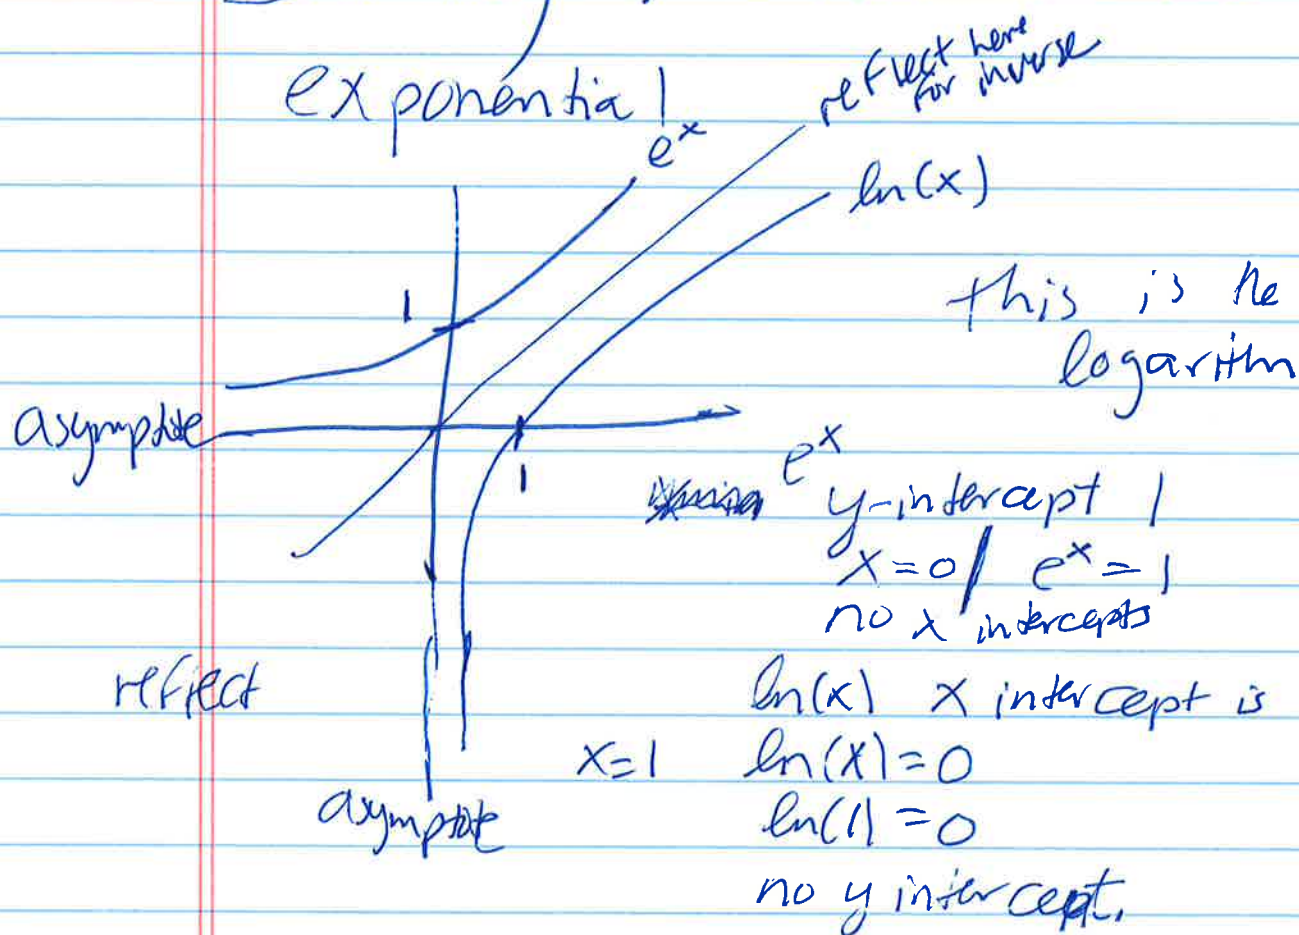 exponential
reflect here
for inverse
e^x
ln(x)
1
this is the
logarithm
asymptote
1
e^x
y-intercept 1
x=0 / e^x = 1
no x intercepts
reflect
ln(x) x intercept is
x=1 ln(x)=0
ln(1)=0
asymptote
no y intercept.